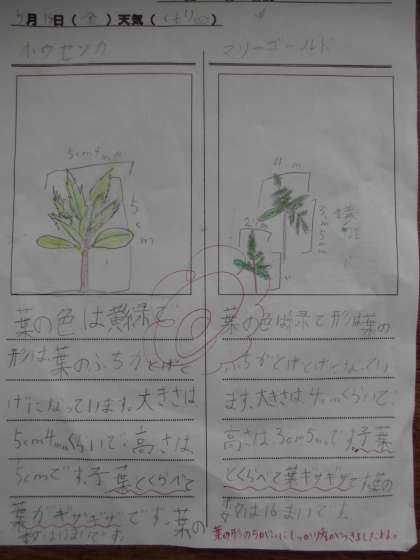 5月19日(金)天気(くもり)
ホウセンカ
5cm4mm
5cm
葉の色は黄緑で
形は、葉のふちがとげとげ
になっています。大きさは
5cm4mmくらいで、高さは
5cmです。子葉とくらべて
葉がギザギザです。葉の
数は12まいです。
マリーゴールド
4cm
2cm
3cm5mm
葉の色は緑で形は葉の
ふちがとげとげしてい
ます。大きさは、4cmくらいで、
高さは3cm5mmです。子葉
とくらべて葉ギザギザで、葉の
数は16まいです。
葉の形のちがいにしっかり気がつきましたね。